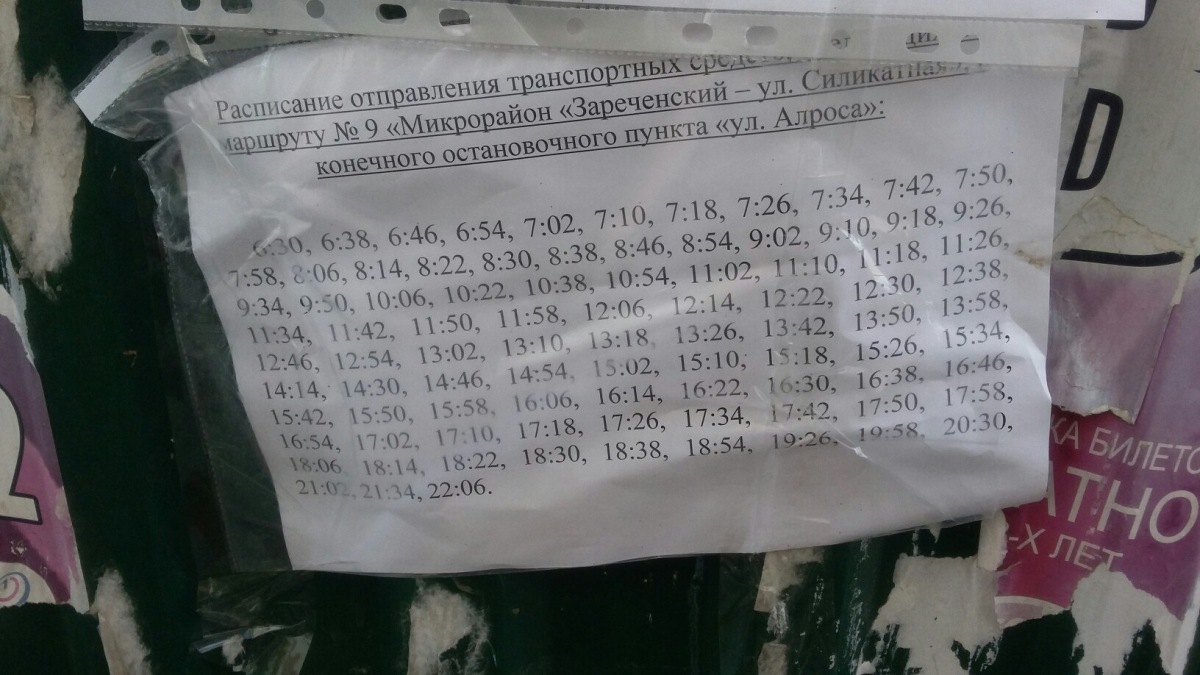 Расписание отправления транспортных
маршруту № 9 «Микрорайон «Зареченский – ул. Силикатная»
конечного остановочного пункта «ул. Алроса»:
6:30, 6:38, 6:46, 6:54, 7:02, 7:10, 7:18, 7:26, 7:34, 7:42, 7:50,
7:58, 8:06, 8:14, 8:22, 8:30, 8:38, 8:46, 8:54, 9:02, 9:10, 9:18, 9:26,
9:34, 9:50, 10:06, 10:22, 10:38, 10:54, 11:02, 11:10, 11:18, 11:26,
11:34, 11:42, 11:50, 11:58, 12:06, 12:14, 12:22, 12:30, 12:38,
12:46, 12:54, 13:02, 13:10, 13:18, 13:26, 13:42, 13:50, 13:58,
14:14, 14:30, 14:46, 14:54, 15:02, 15:10, 15:18, 15:26, 15:34,
15:42, 15:50, 15:58, 16:06, 16:14, 16:22, 16:30, 16:38, 16:46,
16:54, 17:02, 17:10, 17:18, 17:26, 17:34, 17:42, 17:50, 17:58,
18:06, 18:14, 18:22, 18:30, 18:38, 18:54, 19:26, 19:58, 20:30,
21:02, 21:34, 22:06.
D
КА БИЛЕТО
АТНО
-Х ЛЕТ